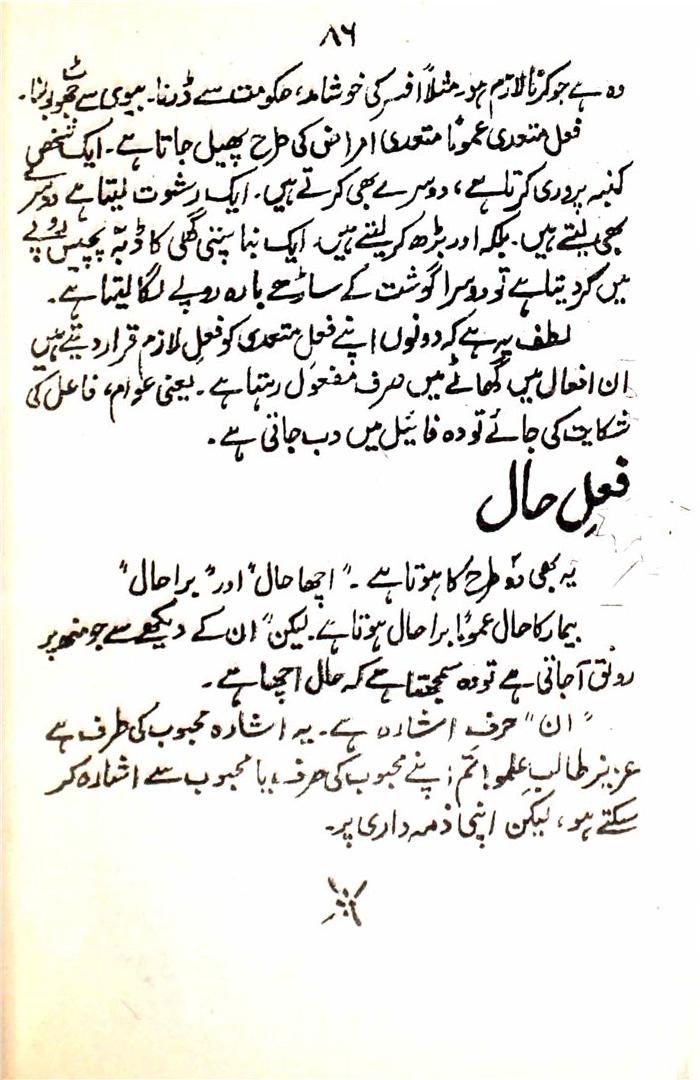 ۸۶
وہ ہے جو کرنا لازم ہو۔ مثلاً افسر کی خوشامد، حکومت سے ڈرنا۔ بیوی سے جھوٹ بولنا۔
فعل متعدی عموماً متعدی امراض کی طرح پھیل جاتا ہے۔ ایک شخص
کنبہ پروری کرتا ہے، دوسرے بھی کرتے ہیں۔ ایک رشوت لیتا ہے دوسرے
بھی لیتے ہیں۔ بلکہ اور بڑھ کر لیتے ہیں۔ ایک بناسپتی گھی کا ڈبہ پچیس روپے
میں کر دیتا ہے تو دوسرا گوشت کے ساڑھے بارہ روپے لگا لیتا ہے۔
لطف یہ ہے کہ دونوں اپنے فعل متعدی کو فعلِ لازم قرار دیتے ہیں
ان افعال میں گھاٹے میں صرف مفعول رہتا ہے۔ یعنی عوام، فاعل کی
شکایت کی جائے تو وہ فائیل میں دب جاتی ہے۔
فعلِ حال
یہ بھی دو طرح کا ہوتا ہے۔ "اچھا حال" اور "برا حال"
بیمار کا حال عموماً برا حال ہوتا ہے۔ لیکن "ان کے دیکھے سے جو منھ پر
رونق آجاتی ہے تو وہ سمجھتا ہے کہ حال اچھا ہے۔
"ان" حرفِ اشارہ ہے۔ یہ اشارہ محبوب کی طرف ہے
عزیز طالب علمو! تم اپنے محبوب کی طرف یا محبوب سے اشارہ کر
سکتے ہو، لیکن اپنی ذمہ داری پر۔